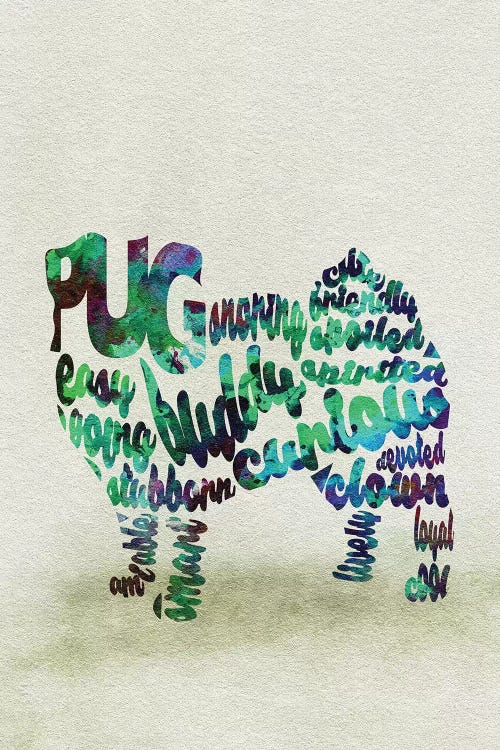 PUG
snoring
cute
friendly
spoiled
spirited
easy
going
buddy
curious
stubborn
devoted
clown
amiable
smart
lively
loyal
cool